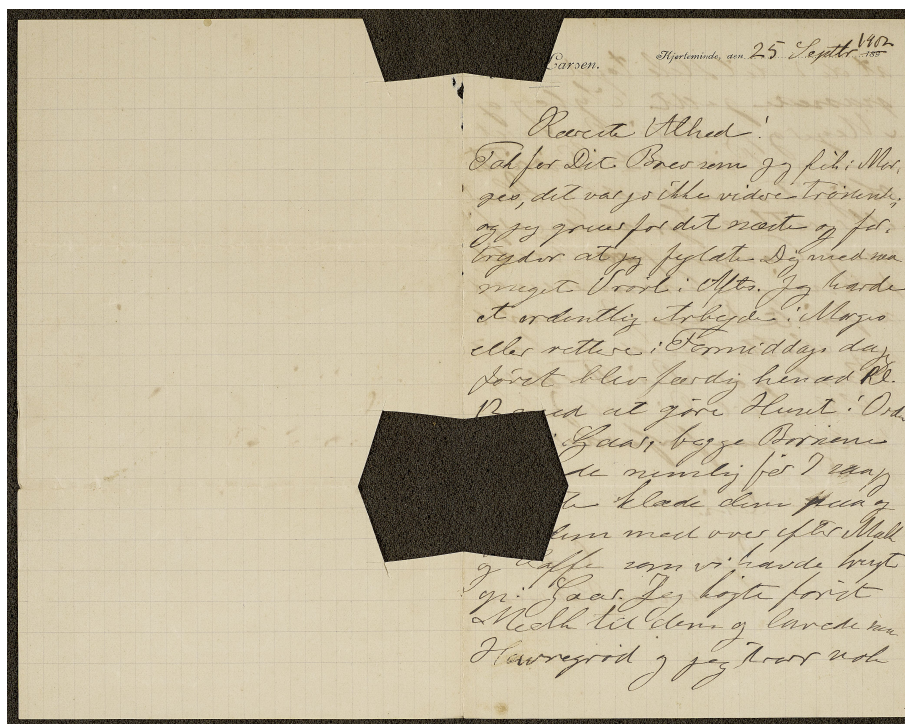 Larsen.
Kjerteminde, den 25 Septbr 1902
189
Kæreste Alhed!
Tak for Dit Brev som jeg fik i Mor-
ges, det var jo ikke videre trøstende,
og jeg gruer for det næste og for-
tryder at jeg fyldte Dig med saa
meget i Aftes. Jeg havde
et ordentlig Arbejde i Morges
eller rettere i Formiddags da jeg
først blev færdig henad Kl.
12 med at gøre Huset i Orden
i Gaar, begge Børnene
nemlig før 7 saa jeg
klæde dem paa og
dem med over efter Mælk
og Kaffe som vi havde brugt
op i Gaar. Jeg kogte først
Mælk til dem og lavede saa
Havregrød og jeg tror nok